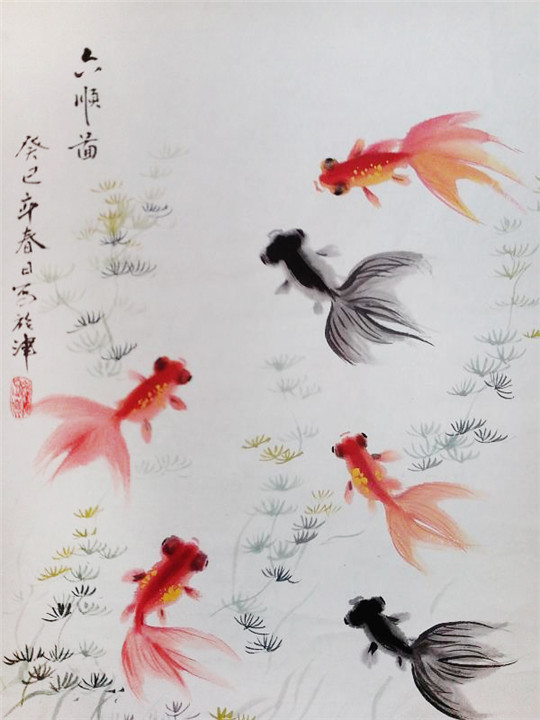 六順啚
癸巳年春日写於津